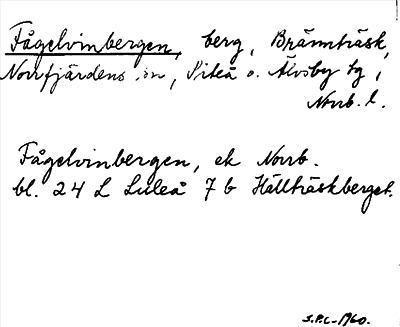 Fågelvinbergen, berg, Brännträsk,
Norrfjärdens sn, Piteå o. Älvsby tg,
Norrb. l.
Fågelvinbergen, ek Norrb.
bl. 24 L Luleå 7 b Hällträskberget.
S.P.L-1960.